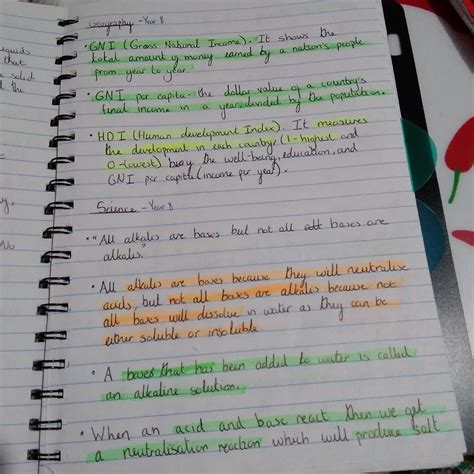 equids
that
solid
the
Geography - Year 8
• GNI (Gross National Income). It shows the
total amount of money earned by a nation's people
from year to year.
• GNI per capita - the dollar value of a country's
final income in a year, divided by the population.
• HDI (Human development Index). It measures
the development in each country (1-highest and
0-lowest) by the well-being, education, and
GNI per capita (income per year).
Science - Year 8
• "All alkalis are bases but not all bases are
alkalis."
• All alkalis are bases because they will neutralise
acids, but not all bases are alkalis because not
all bases will dissolve in water as they can be
either soluble or insoluble.
• A bases that has been added to water is called
an alkaline solution.
• When an acid and base react then we get
a neutralisation reaction which will produce salt